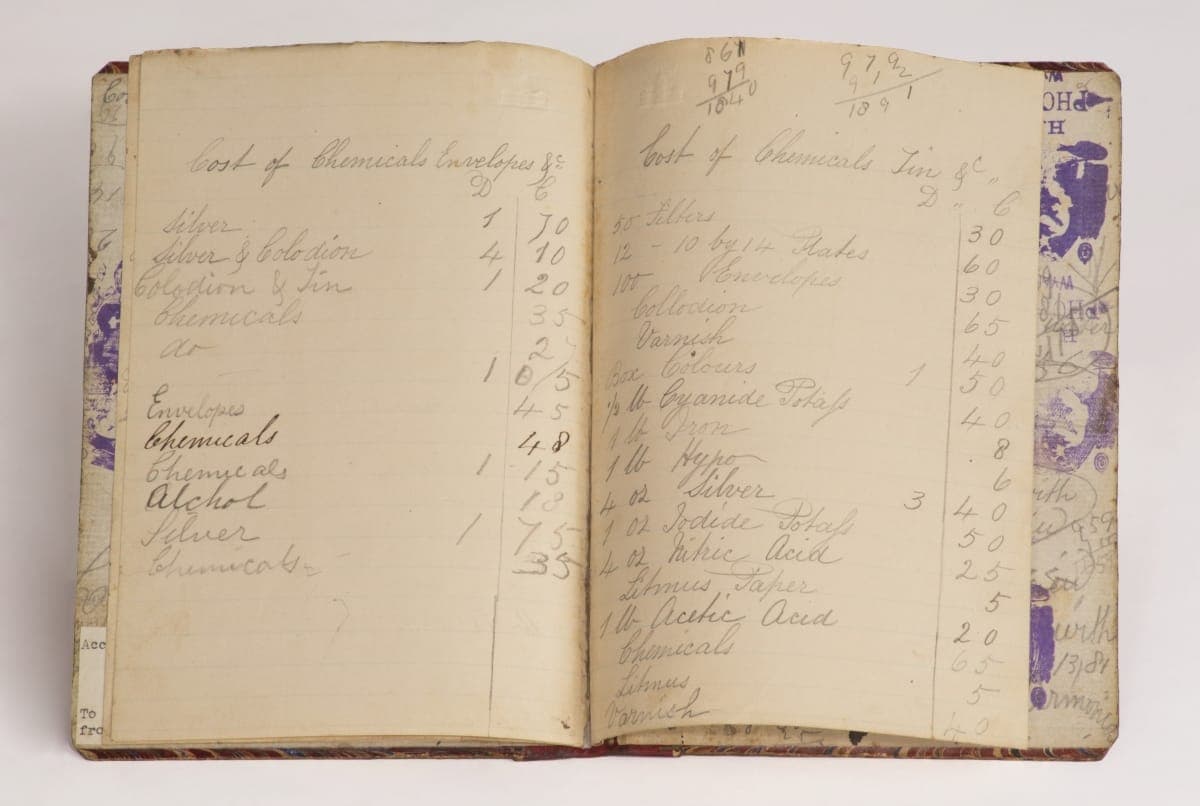 Cost of Chemicals Envelopes &c
D C
Silver 1 70
Silver & Colodion 4 10
Colodion & Tin 1 20
Chemicals 35
do 25
1 05
Envelopes 45
Chemicals 48
Chemicals 1 15
Alchol 18
Silver 1 75
Chemicals 35
Acc
To
fro
861
979
1840
979
912
1891
Cost of Chemicals Tin & c
D " C
50 Filters 30
12 - 10 by 14 Plates 60
100 Envelopes 30
Collodion 65
Varnish 40
Box Colours 1 50
1/2 lb Cyanide Potass 40
1 lb Iron 8
1 lb Hypo 6
4 oz Silver 3 40
1 oz Iodide Potass 50
4 oz Nitric Acid 25
Litmus Paper 5
1 lb Acetic Acid 20
Chemicals 65
Litmus 5
Varnish 40
with
with
13, 81